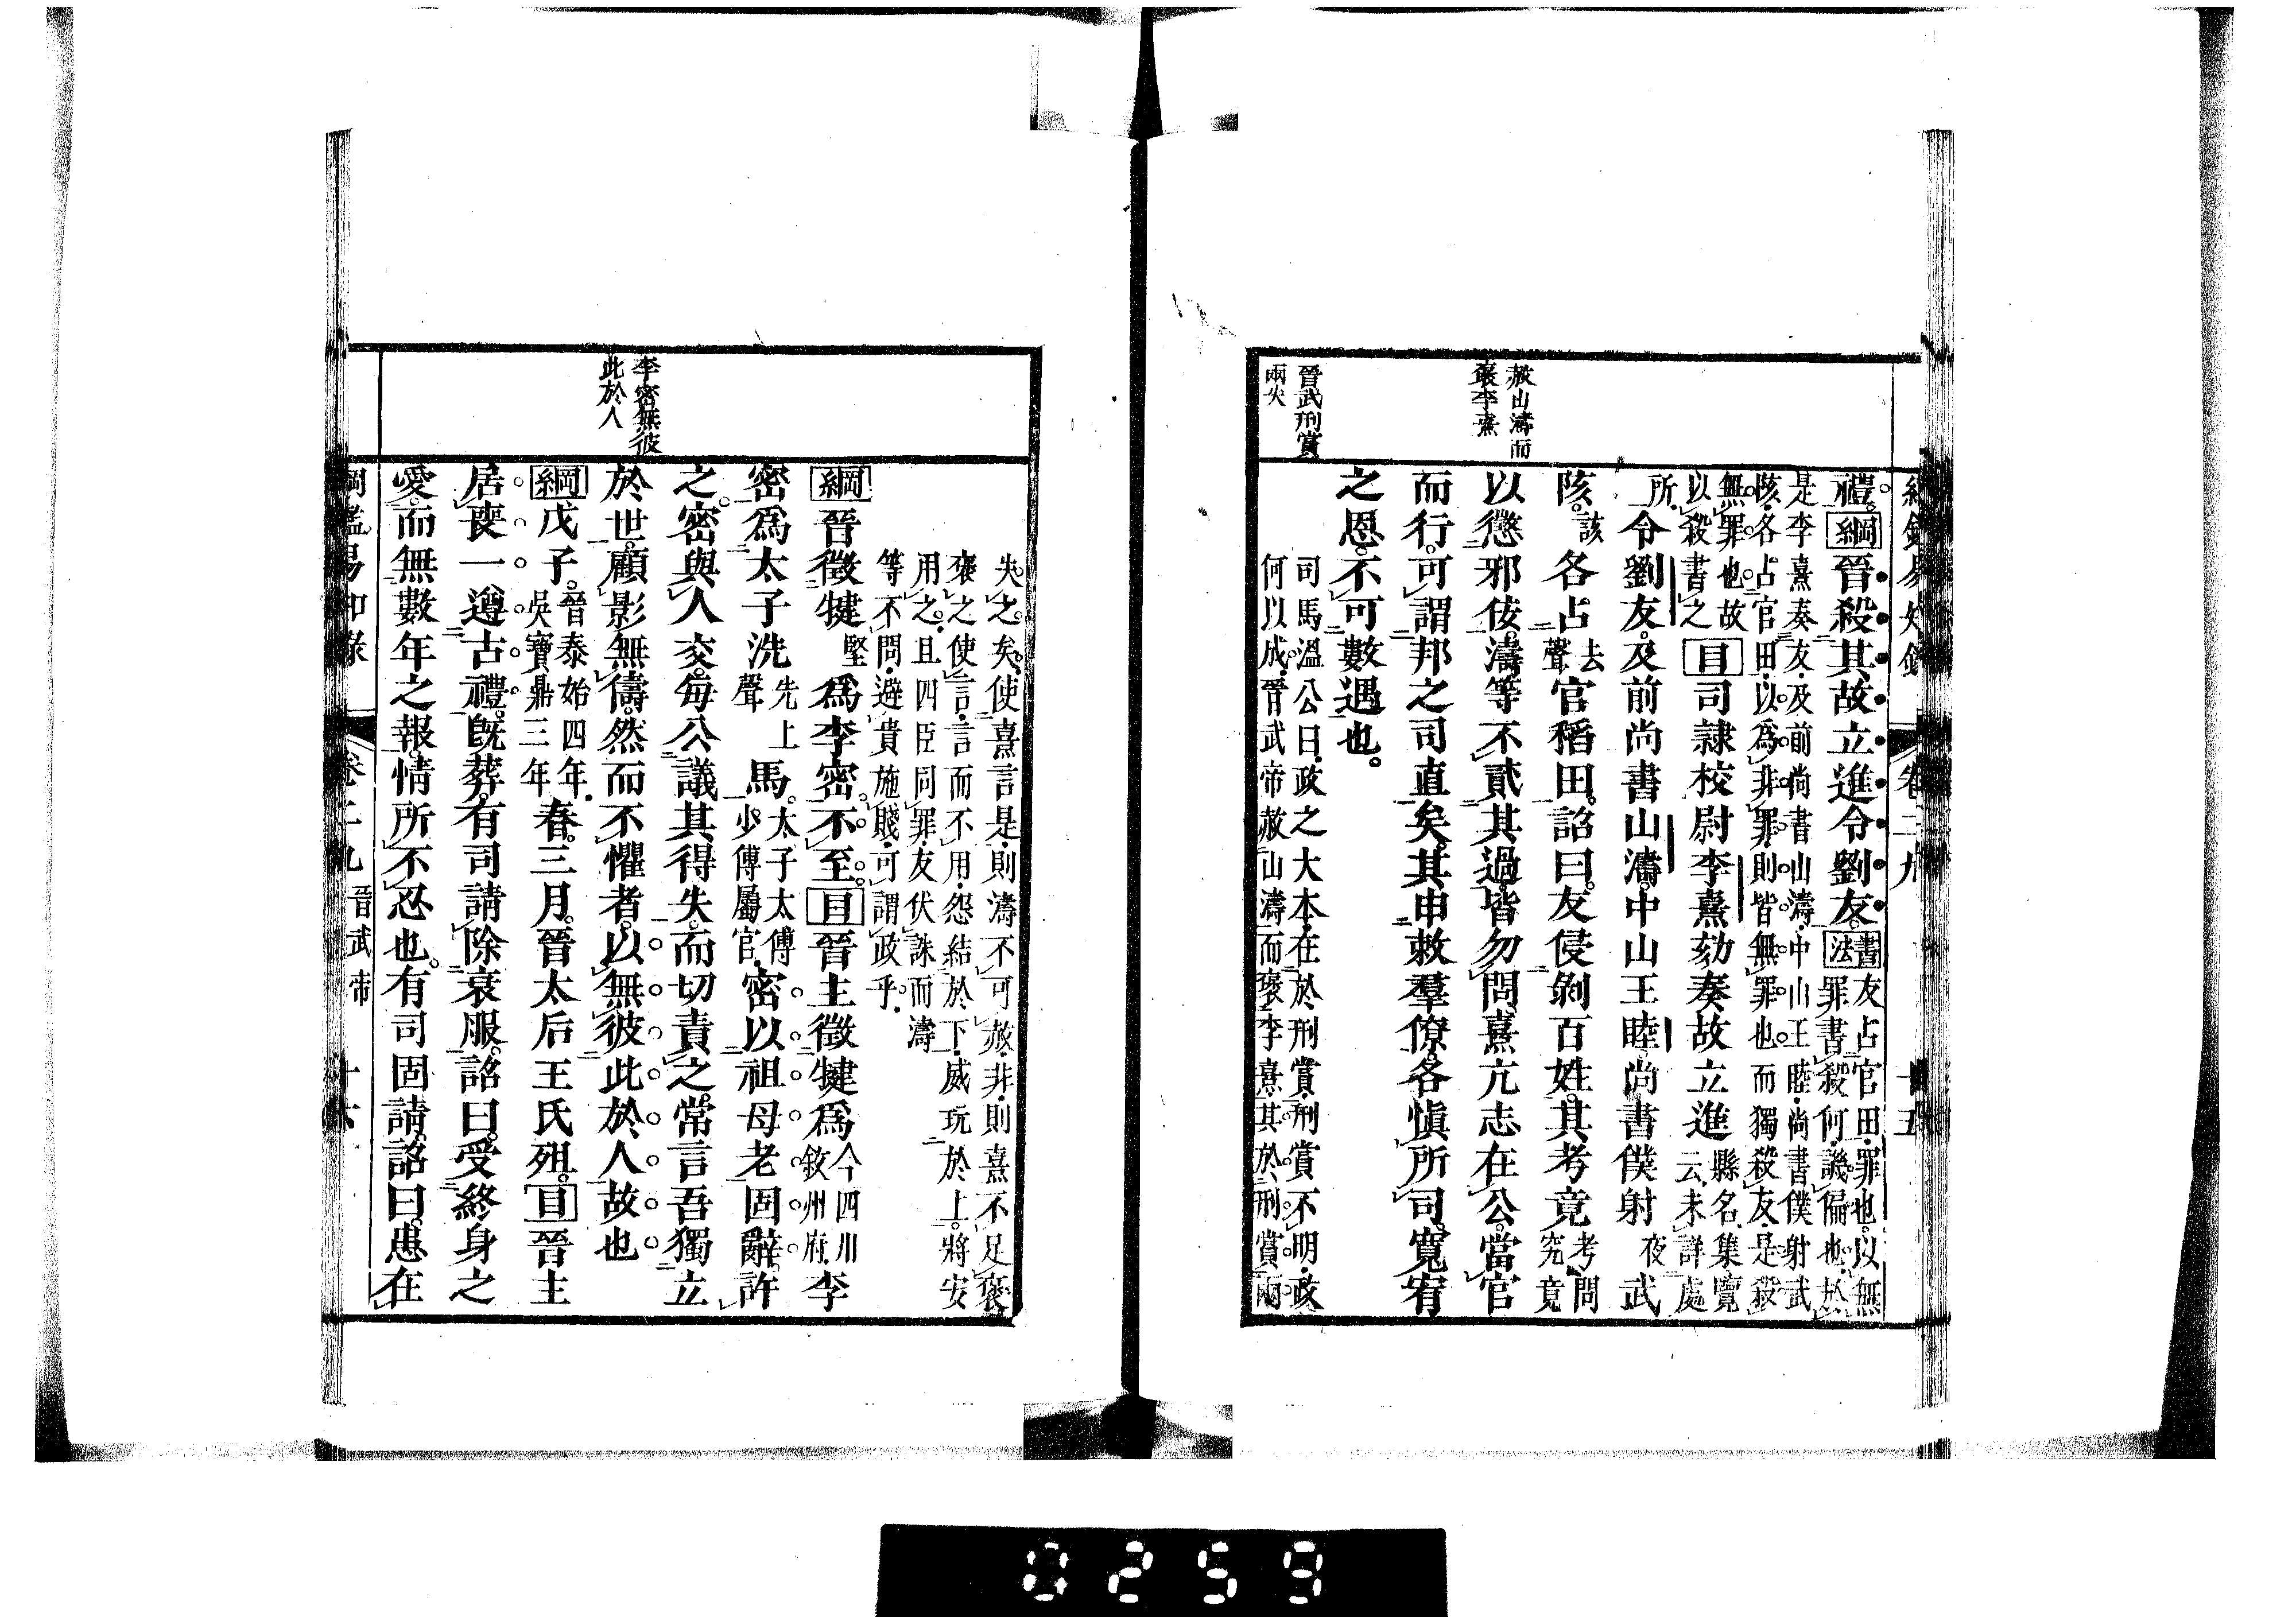 赦山濤而
褒李熹
晉武刑賞
兩失
卷二九
十五
禮。綱晉殺其故立進令劉友。書法友占官田、罪也。以無
罪書殺何。譏偏也。於
是李熹奏友、及前尚書山濤、中山王睦、尚書僕射武
陔、各占官田、以爲非罪、則皆無罪也。而獨殺友、是殺
無罪也。故
以殺書之目司隷校尉李熹劾奏故立進縣名、集覽
云、未詳處
所、令劉友。及前尚書山濤。中山王睦。尚書僕射夜武
陔。該各占去聲官稻田。詔曰。友侵剝百姓。其考竟考問
究竟
以懲邪佞。濤等不貳其過。皆勿問。熹亢志在公。當官
而行。可謂邦之司直矣。其申敕羣僚。各愼所司。寬宥
之恩。不可數遇也。
司馬溫公曰、政之大本、在於刑賞、刑賞不明、政
何以成、晉武帝赦山濤而褒李熹、其於刑賞兩
李密無彼
此於人
失之矣。使熹言是、則濤不可赦、非、則熹不足褒。
褒之使言、言而不用、怨結於下、威玩於上。將安
用之。且四臣同罪、友伏誅而濤
等不問、避貴施賤、可謂政乎。
綱晉徵犍堅爲李密。不至。目晉主徵犍爲今四川
敘州府、李
密爲太子洗先上
聲馬。太子太傅
少傅屬官、密以祖母老固辭。許
之。密與人交。每公議其得失。而切責之。常言吾獨立
於世。顧影無儔。然而不懼者。以無彼此於人故也
綱戊子。晉泰始四年、
吳寶鼎三年春。三月。晉太后王氏殂。目晉主
居喪一遵古禮。旣葬。有司請除衰服。詔曰。受終身之
愛。而無數年之報。情所不忍也。有司固請。詔曰。患在
綱鑑易知錄
卷二九
晉武帝
十六